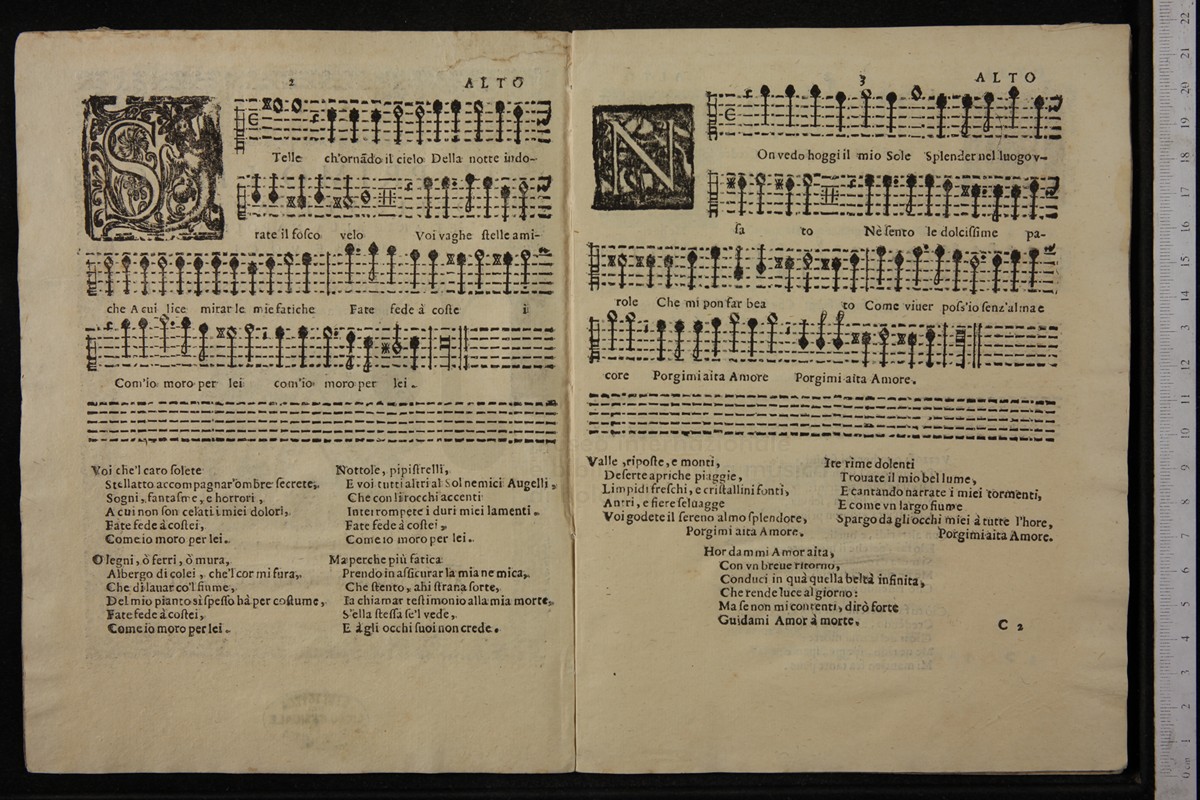 2 ALTO
S
Telle ch'ornādo il cielo Della notte indo-
rate il fosco velo Voi vaghe stelle ami-
che A cui lice mirar le mie fatiche Fate fede à coste i
Com'io moro per lei com'io moro per lei.
Voi che'l caro solete
Stellatto accompagnar'ombre secrete,
Sogni, fantasme, e horrori,
A cui non son celati i miei dolori,
Fate fede à costei,
Come io moro per lei.
O legni, ò ferri, ò mura,
Albergo di colei, che'l cor mi fura,
Che di lauar co'l fiume,
Del mio pianto sì spesso hà per costume,
Fate fede à costei,
Come io moro per lei.
Nottole, pipistrelli,
E voi tutti altri al Sol nemici Augelli,
Che con li rocchi accenti
Interrompete i duri miei lamenti.
Fate fede à costei,
Come io moro per lei.
Ma perche più fatica
Prendo in assicurar la mia nemica,
Che stento, ahi strana sorte,
Ia chiamar testimonio alla mia morte,
S'ella stessa se'l vede,
E à gli occhi suoi non crede.
3 ALTO
N
On vedo hoggi il mio Sole Splender nel luogo v-
sa to Nè sento le dolcissime pa-
role Che mi pon far bea to Come viuer poss'io senz'alma e
core Porgimi aita Amore Porgimi aita Amore.
Valle, riposte, e monti,
Deserte apriche piaggie,
Limpidi freschi, e cristallini fonti,
Antri, e fiere seluagge
Voi godete il sereno almo splendore,
Porgimi aita Amore.
Ite rime dolenti
Trouate il mio bel lume,
E cantando narrate i miei tormenti,
E come vn largo fiume
Spargo da gli occhi miei à tutte l'hore,
Porgimi aita Amore.
Hor dammi Amor aita,
Con vn breue ritorno,
Conduci in quà quella beltà infinita,
Che rende luce al giorno:
Ma se non mi contenti, dirò forte
Guidami Amor à morte.
C 2
0 cm 1 2 3 4 5 6 7 8 9 10 11 12 13 14 15 16 17 18 19 20 21 22